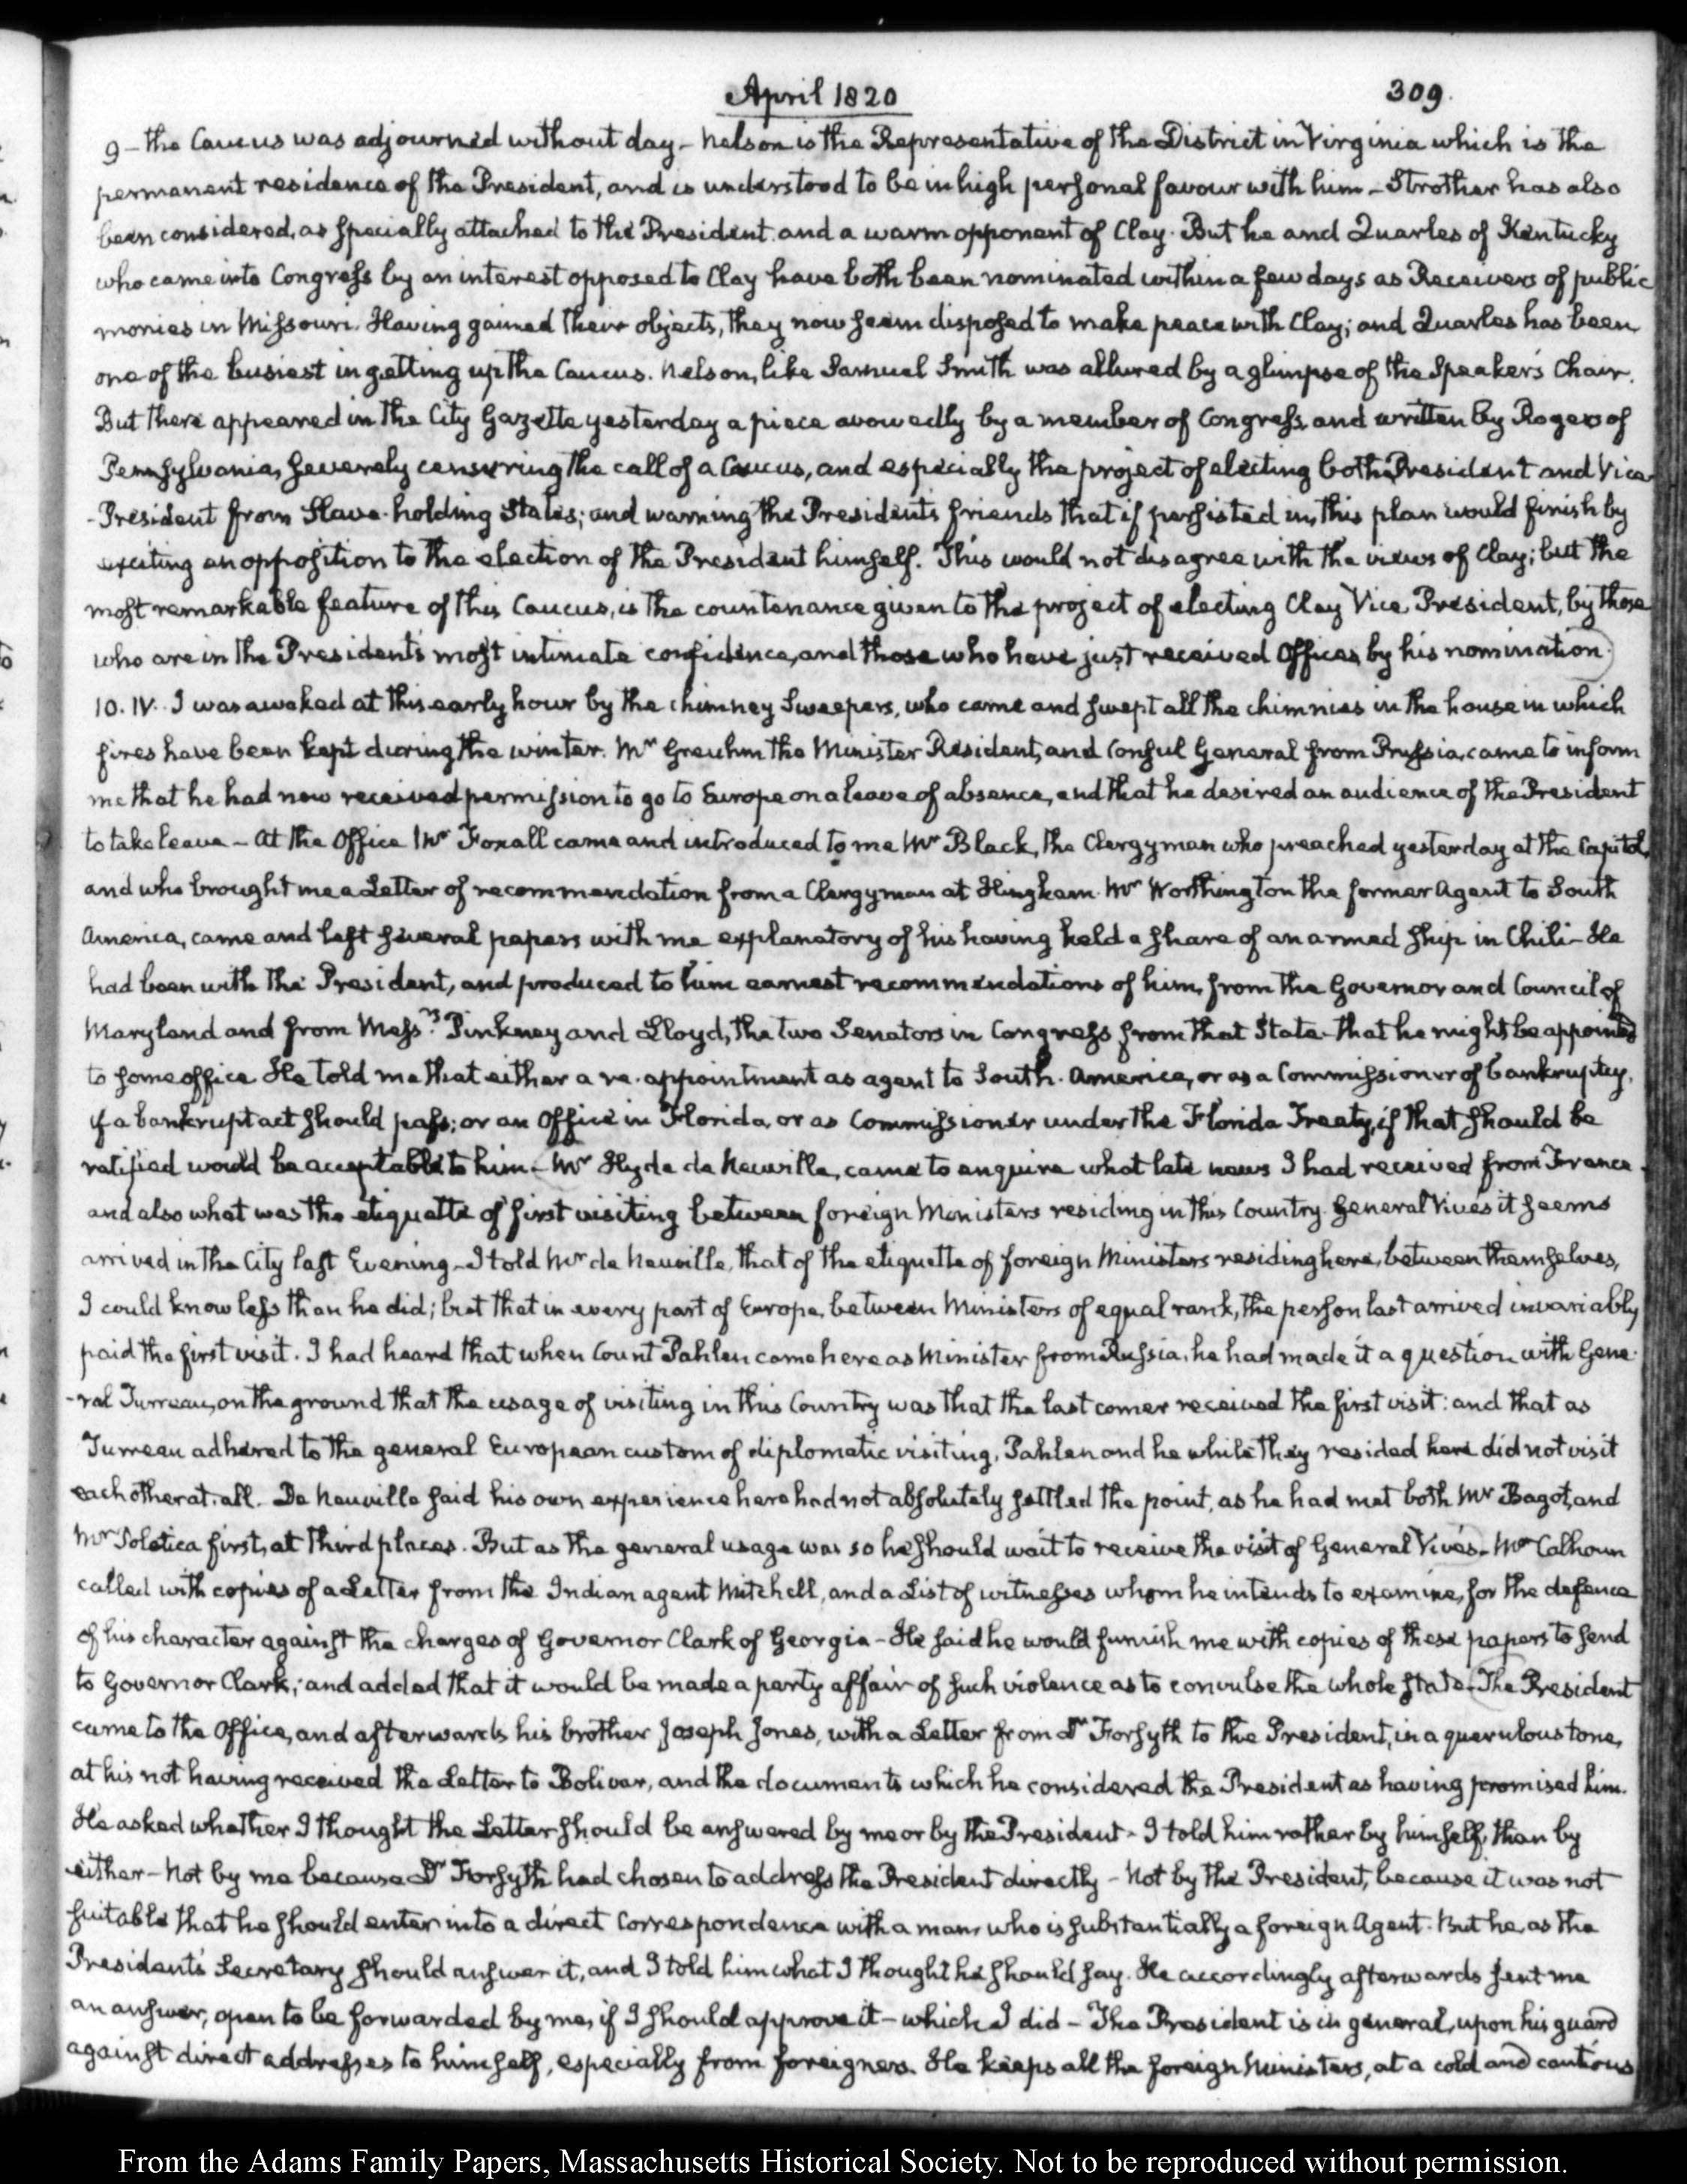 April 1820
309.
9 – the Caucus was adjourned without day – Nelson is the Representative of the District in Virginia which is the
permanent residence of the President, and is understood to be in high personal favour with him – Strother has also
been considered, as specially attached to the President and a warm opponent of Clay. But he and Quarles of Kentucky
who came into Congress by an interest opposed to Clay have both been nominated within a few days as Receivers of public
monies in Missouri. Having gained their objects, they now seem disposed to make peace with Clay; and Quarles has been
one of the busiest in getting up the Caucus. Nelson, like Samuel Smith was allured by a glimpse of the Speaker's Chair.
But there appeared in the City Gazette yesterday a piece avowedly by a member of Congress, and written by Rogers of
Pennsylvania, severely censuring the call of a Caucus, and especially the project of electing both President and Vice
-President from Slave-holding States; and warning the President's friends that if persisted in, this plan would finish by
exciting an opposition to the election of the President himself. This would not disagree with the views of Clay; but the
most remarkable feature of this Caucus, is the countenance given to the project of electing Clay Vice President, by those
who are in the President's most intimate confidence, and those who have just received Offices by his nomination.)
10. IV. I was awaked at this early hour by the chimney Sweepers, who came and swept all the chimnies in the house in which
fires have been kept during the winter. Mr Greuhm the Minister Resident, and Consul General from Prussia, came to inform
me that he had now received permission to go to Europe on a leave of absence, and that he desired an audience of the President
to take leave – At the Office Mr Foxall came and introduced to me Mr Black, the Clergyman who preached yesterday at the Capitol,
and who brought me a Letter of recommendation from a Clergyman at Hingham. Mr Worthington the former Agent to South
America, came and left several papers with me explanatory of his having held a share of an armed ship in Chili – He
had been with the President, and produced to him earnest recommendations of him, from the Governor and Council of
Maryland and from Messrs Pinkney and Lloyd, the two Senators in Congress from that State that he might be appointed
to some office. He told me that either a re-appointment as agent to South-America, or as a Commissioner of bankruptcy,
if a bankrupt act should pass; or an Office in Florida, or as Commissioner under the Florida Treaty, if that should be
ratified would be acceptable to him – Mr Hyde de Neuville, came to enquire what late news I had received from France.
and also what was the etiquette of first visiting between foreign Ministers residing in this Country. General Vivés it seems
arrived in the City last Evening – I told Mr de Neuville, that of the etiquette of foreign Ministers residing here, between themselves,
I could know less than he did; but that in every part of Europe, between Ministers of equal rank, the person last arrived invariably
paid the first visit. I had heard that when Count Pahlen came here as Minister from Russia, he had made it a question with Gene-
-ral Turreau, on the ground that the usage of visiting in this Country was that the last comer received the first visit: and that as
Turreau adhered to the general European custom of diplomatic visiting, Pahlen and he while they resided here did not visit
each other at all. De Neuville said his own experience here had not absolutely settled the point, as he had met both Mr Bagot, and
Mr Poletica first, at third places. But as the general usage was so he should wait to receive the visit of General Vivés – Mr Calhoun
called with copies of a Letter from the Indian agent Mitchell, and a List of witnesses whom he intends to examine, for the defence
of his character against the charges of Governor Clark of Georgia – He said he would furnish me with copies of these papers to send
to Governor Clark; and added that it would be made a party affair of such violence as to convulse the whole State – (The President
came to the Office, and afterwards his brother Joseph Jones, with a Letter from Dr Forsyth to the President, in a querulous tone,
at his not having received the Letter to Bolivar, and the documents which he considered the President as having promised him.
He asked whether I thought the Letter should be answered by me or by the President – I told him rather by himself, than by
either – Not by me because Dr Forsyth had chosen to address the President directly – Not by the President, because it was not
suitable that he should enter into a direct Correspondence with a man, who is substantially a foreign Agent. But he, as the
President's Secretary should answer it, and I told him what I thought he should say. He accordingly afterwards sent me
an answer, open to be forwarded by me, if I should approve it – which I did – The President is in general, upon his guard
against direct addresses to himself, especially from foreigners. He keeps all the foreign Ministers, at a cold and cautious
From the Adams Family Papers, Massachusetts Historical Society. Not to be reproduced without permission.